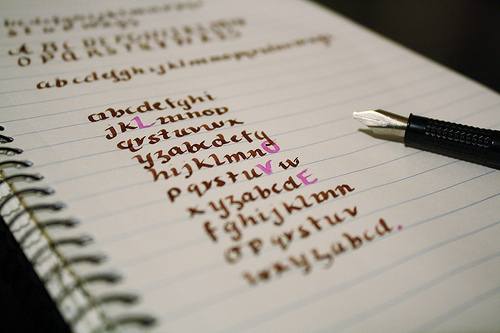 abcdefghijklmnopqrstuvwxyz
abcdefghi
jkLmnop
qrstuvwx
yzabcdefg
hijklmnO
pqrstuVw
xyzabcdE
fghijklmn
opqrstuv
wxyzabcd.